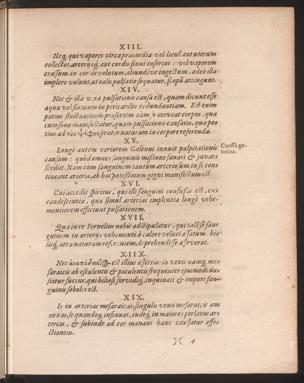 XIII.
Neq; qui vapores circa præcordia vel lienē aut uterum
collectos, arterijsq́; aut cordis sinui infertos: vel vaporem
crassum in cor devolutum, aliundéve ingestum, adeò illa
implere volunt, ut talis pulsatio sequatur, scopũ attingunt.
XIV.
Nec & illa vera pulsationis causa est, quam dicunt esse
aquā vel flatum in pericardio redundantiam. Est enim
potius fluctuationis præsertim cùm moveat corpus, qua
cum sono manifestatur, quam pulsationis causa, qua po-
tius ad præter naturam in corpore referenda.
XV.
Longè autem veriorem Galenus innuit palpitationis
causam: quòd omnes sanguinis missione sanari & juvari
scribit. Nam cùm sanguinem tantùm arteriosum in se con
tineant arteriæ, ab hoc potissimum gigni manifestum est.
Caussa ge-
nuina.
XVI.
Cui accedit spiritus, qui illi sanguini confusus est, ex-
candescentia, qua simul arterias implentia longè vehe-
mentiorem efficiunt pulsationem.
XVII.
Quare Fernelius nobis adstipulatur, qui talē fit san-
guinem in arterijs vehementi à calore veluti astuare: bi-
liosq́, atra naturam referentem, & prehendisse asserat.
XIIX.
Nec est illius assertio: in venis namq; me-
saraicis ab esculentis & poculentis frequenter ejusmodi na-
scitur succus, qui biliosi fervidiq́, sanguinis & impuri san-
guinis soboles est.
XIX.
Is in arterias mesaraicas, singulis venis mesaraicis an-
nexas, se quandoq, insinuat, indeq́, in majores perlatus ar-
terias, & subinde ad cor manans hanc causatur affe-
ctionem.
)( 4